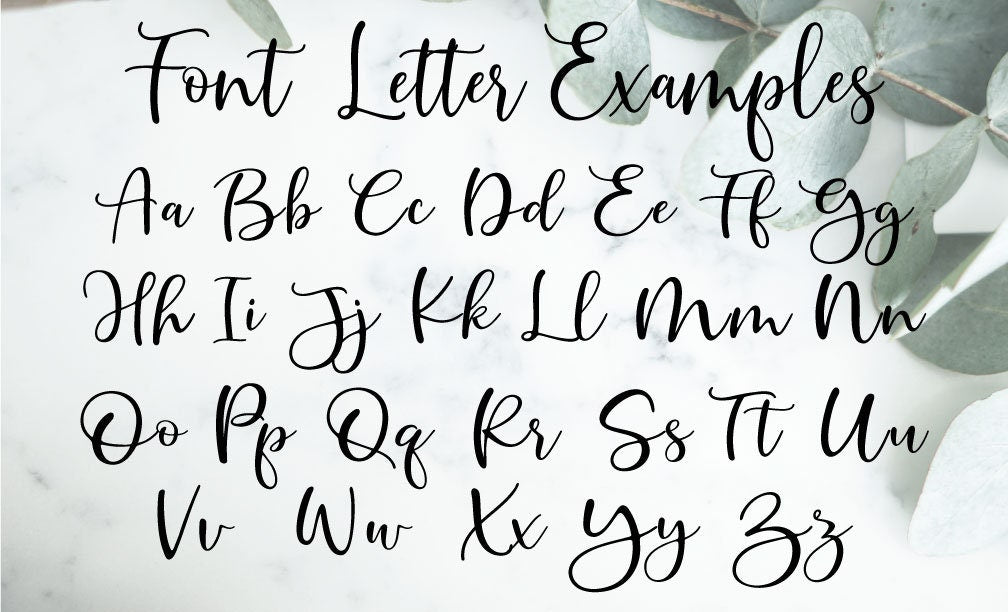 Font Letter Examples
Aa Bb Cc Dd Ee Ff Gg
Hh Ii Jj Kk Ll Mm Nn
Oo Pp Qq Rr Ss Tt Uu
Vv Ww Xx Yy Zz